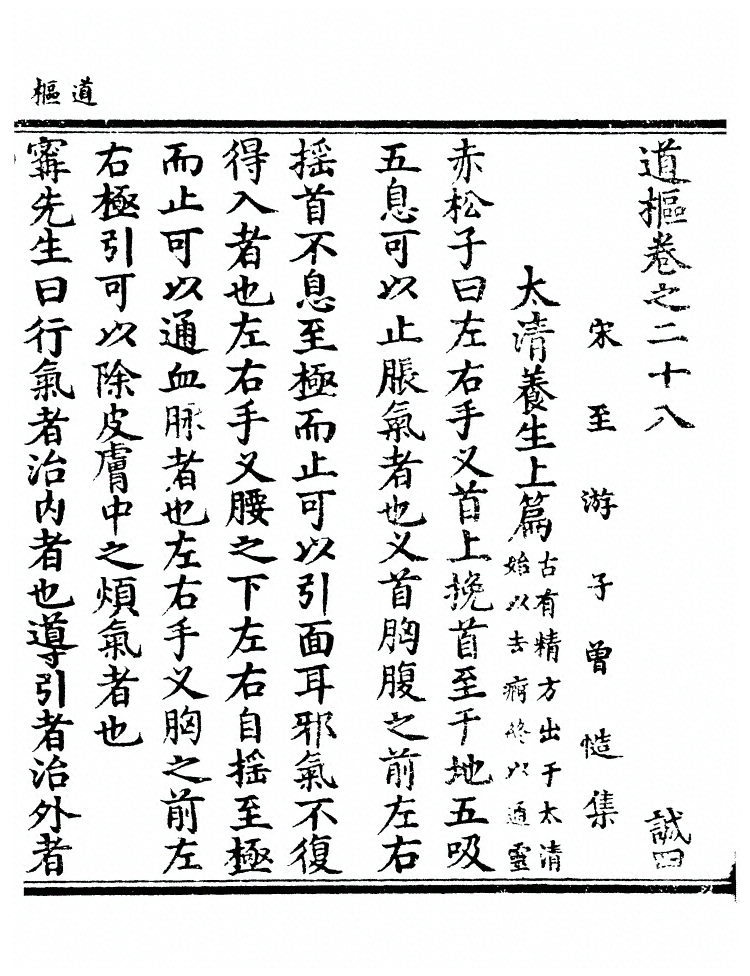 道樞
道樞卷之二十八　誠四
宋至游子曾慥集
太清養生上篇
古有精方出于太清
始以去痾終以通靈
赤松子曰左右手义首上挽首至于地五吸
五息可以止脹氣者也义首胸腹之前左右
搖首不息至極而止可以引面耳邪氣不復
得入者也左右手义腰之下左右自搖至極
而止可以通血脉者也左右手义胸之前左
右極引可以除皮膚中之煩氣者也
甯先生曰行氣者治内者也導引者治外者